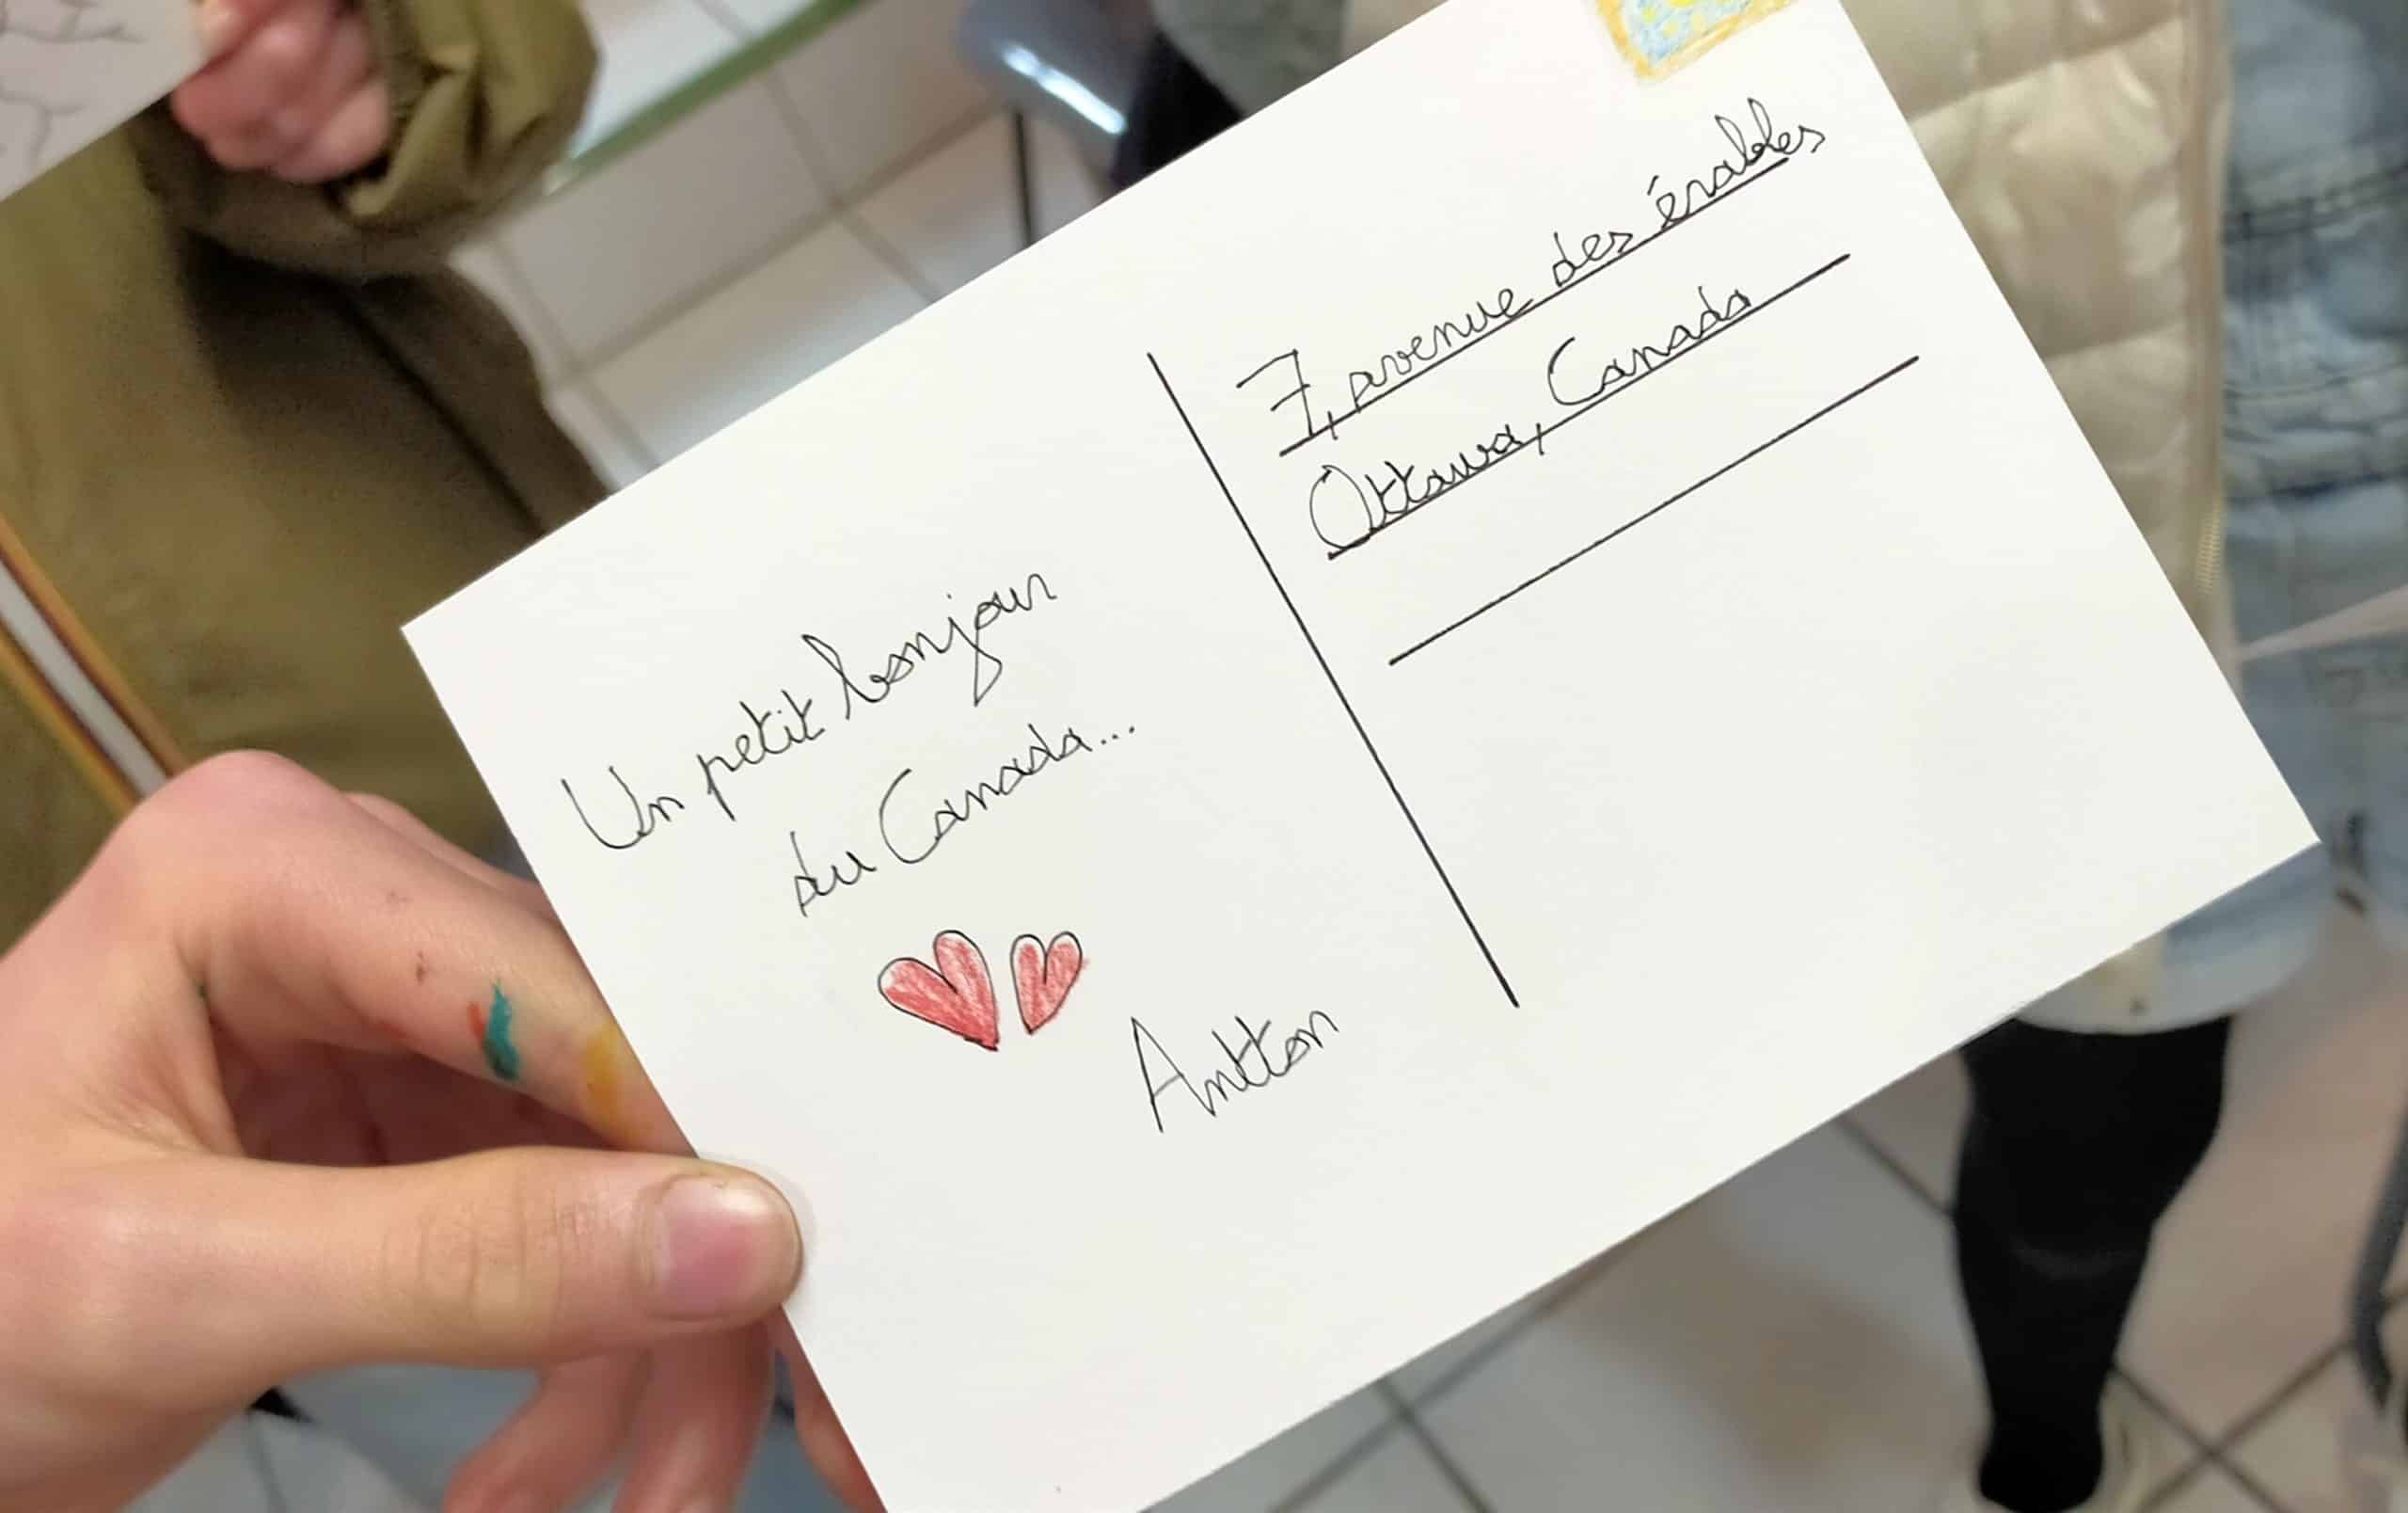 Un petit bonjour
du Canada...
Antton
7, avenue des érables
Ottawa, Canada